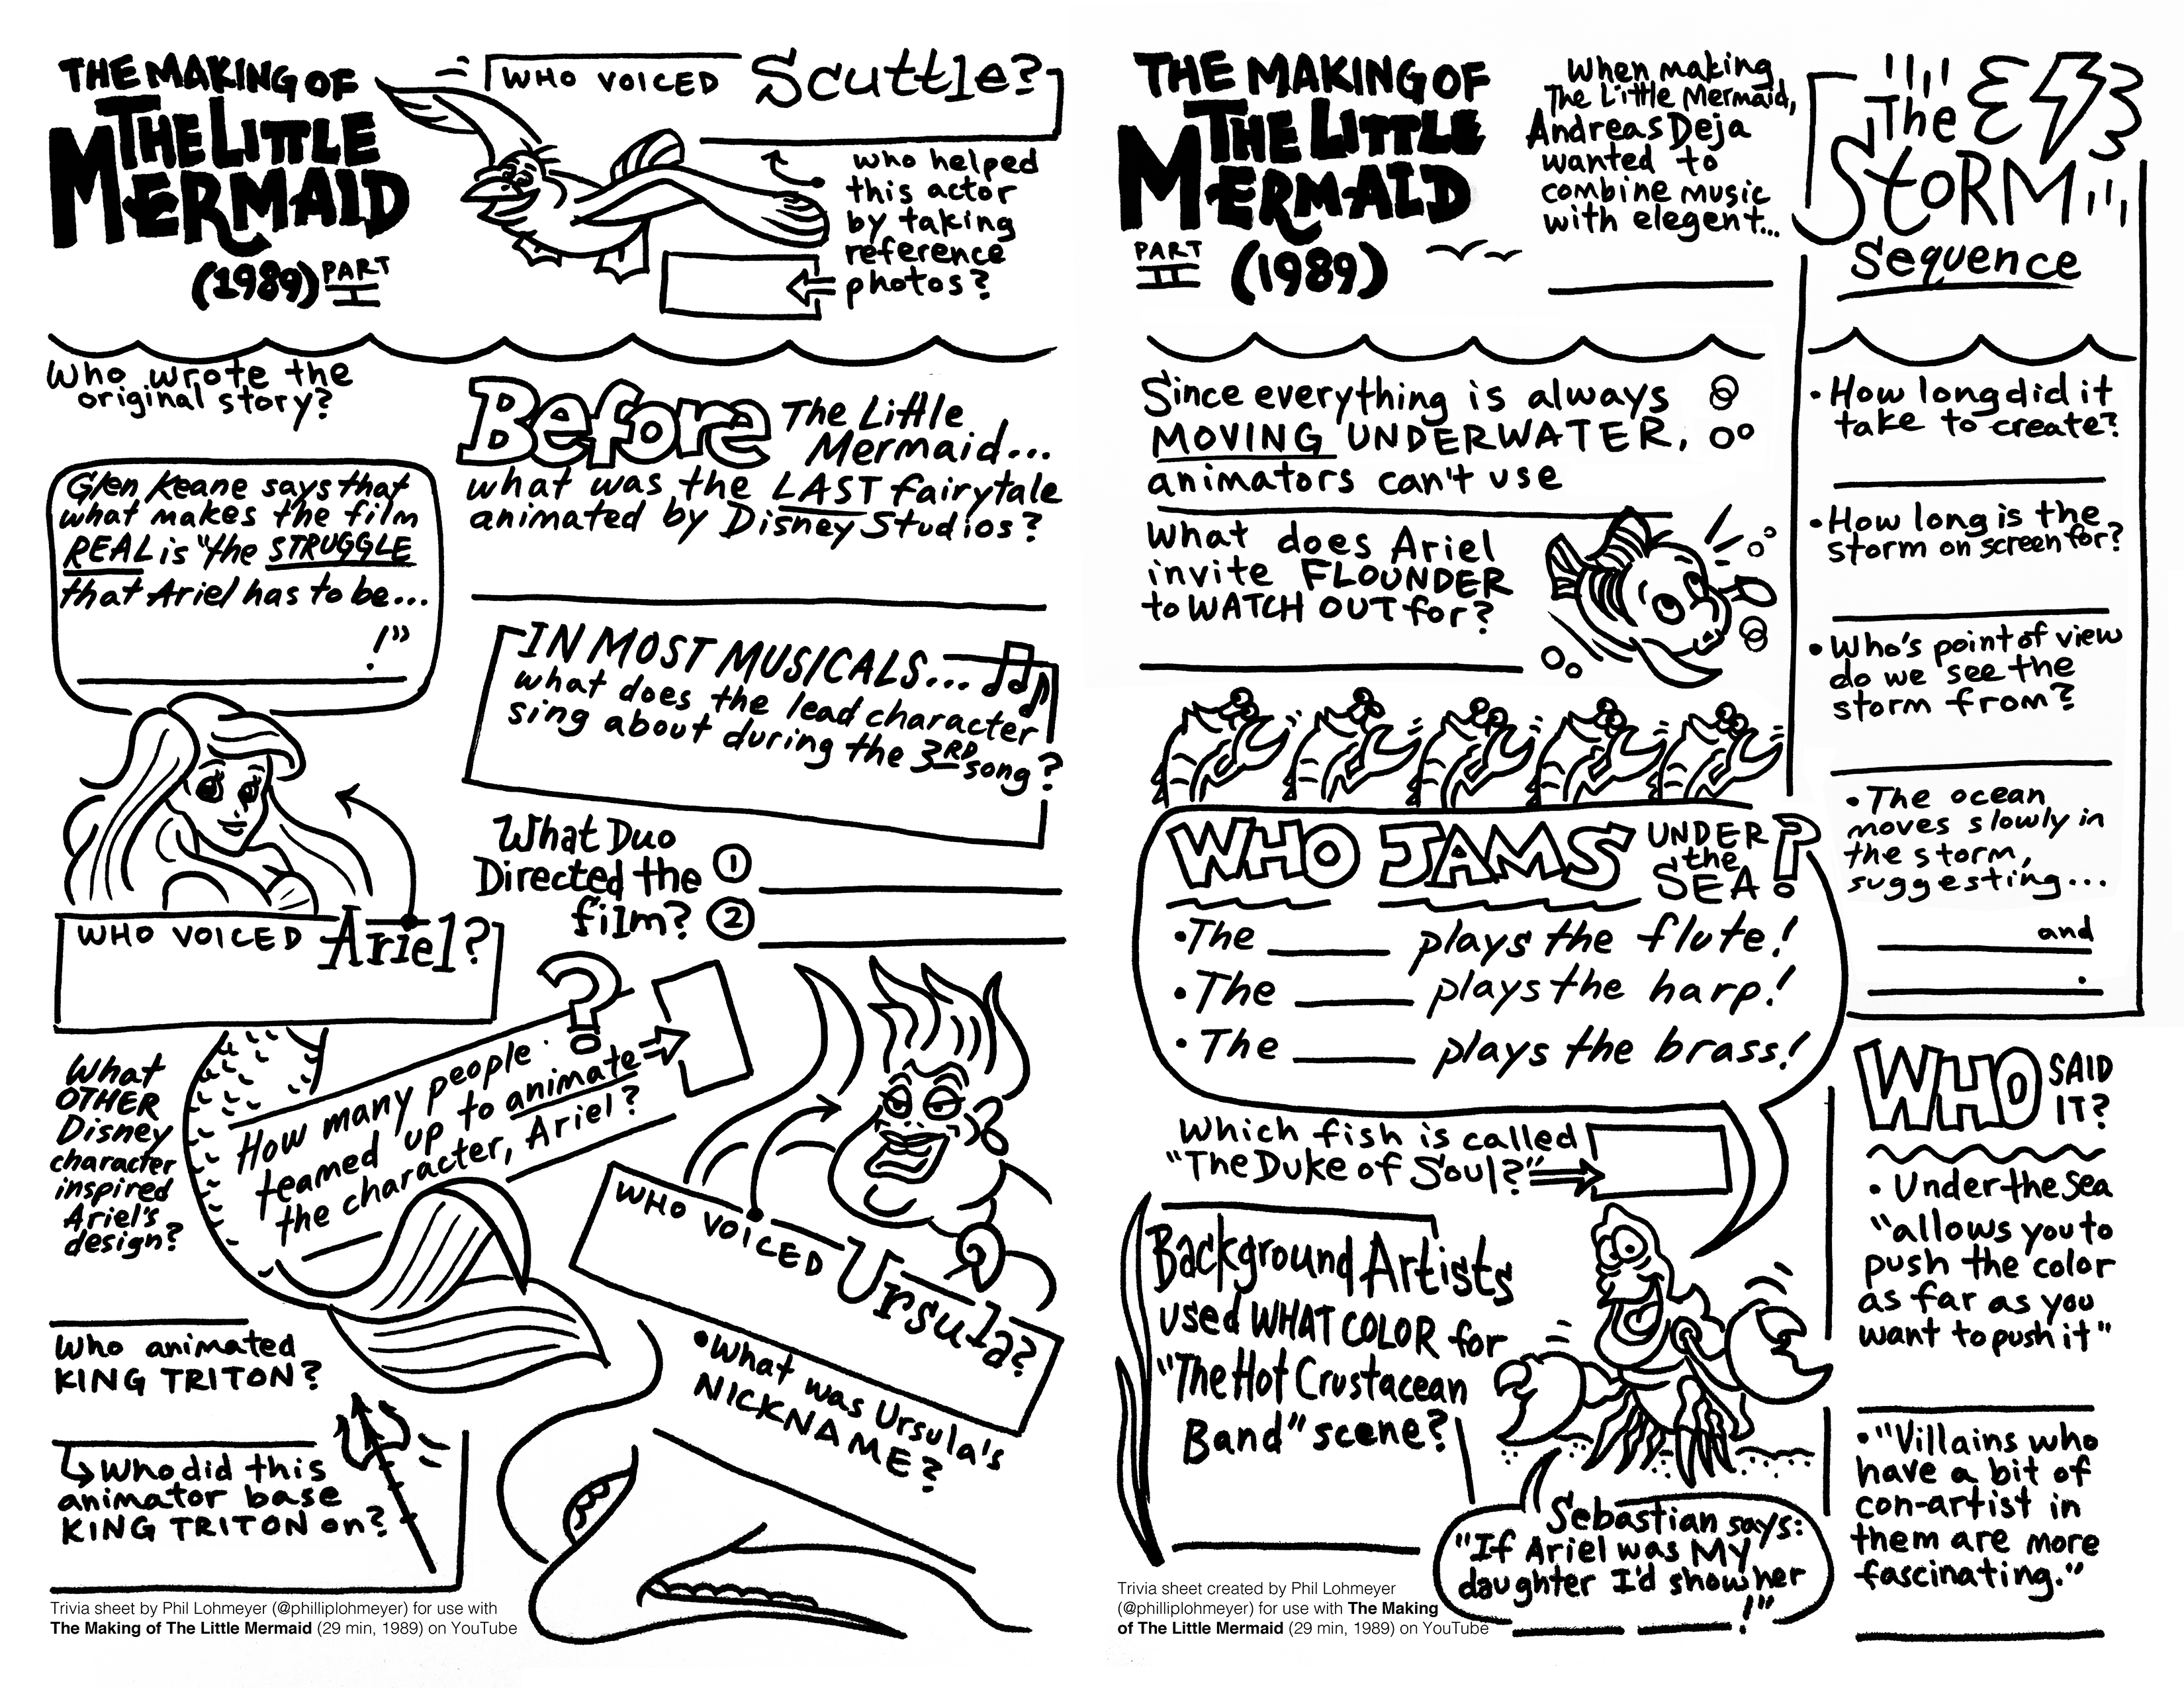 THE MAKING OF
THE LITTLE
MERMAID
(1989) PART
I
WHO VOICED Scuttle?
who helped
this actor
by taking
reference
photos?
Who wrote the
original story?
Glen Keane says that
what makes the film
REAL is "the STRUGGLE
that Ariel has to be...
!"
Before The Little
Mermaid...
what was the LAST fairytale
animated by Disney Studios?
IN MOST MUSICALS...
what does the lead character
sing about during the 3RD song?
What Duo
Directed the
film?
1
2
WHO VOICED Ariel?
What
OTHER
Disney
character
inspired
Ariel's
design?
How many people
teamed up to animate
the character, Ariel?
?
WHO VOICED Ursula?
• What was Ursula's
NICKNAME?
Who animated
KING TRITON?
Who did this
animator base
KING TRITON on?
Trivia sheet by Phil Lohmeyer (@philliplohmeyer) for use with
The Making of The Little Mermaid (29 min, 1989) on YouTube
THE MAKING OF
THE LITTLE
MERMAID
PART
II
(1989)
When making
The Little Mermaid,
Andreas Deja
wanted to
combine music
with elegent...
The
StoRM
Sequence
Since everything is always
MOVING UNDERWATER,
animators can't use
What does Ariel
invite FLOUNDER
to WATCH OUT for?
• How long did it
take to create?
• How long is the
storm on screen for?
• Who's point of view
do we see the
storm from?
• The ocean
moves slowly in
the storm,
suggesting...
and
.
WHO JAMS UNDER
the
SEA?
• The ______ plays the flute!
• The ______ plays the harp!
• The ______ plays the brass!
Which fish is called
"The Duke of Soul?"
Background Artists
used WHAT COLOR for
"The Hot Crustacean
Band" scene?
Sebastian says:
"If Ariel was MY
daughter I'd show her
!"
WHO SAID
IT?
• Under the Sea
"allows you to
push the color
as far as you
want to push it"
• "Villains who
have a bit of
con-artist in
them are more
fascinating."
Trivia sheet created by Phil Lohmeyer
(@philliplohmeyer) for use with The Making
of The Little Mermaid (29 min, 1989) on YouTube